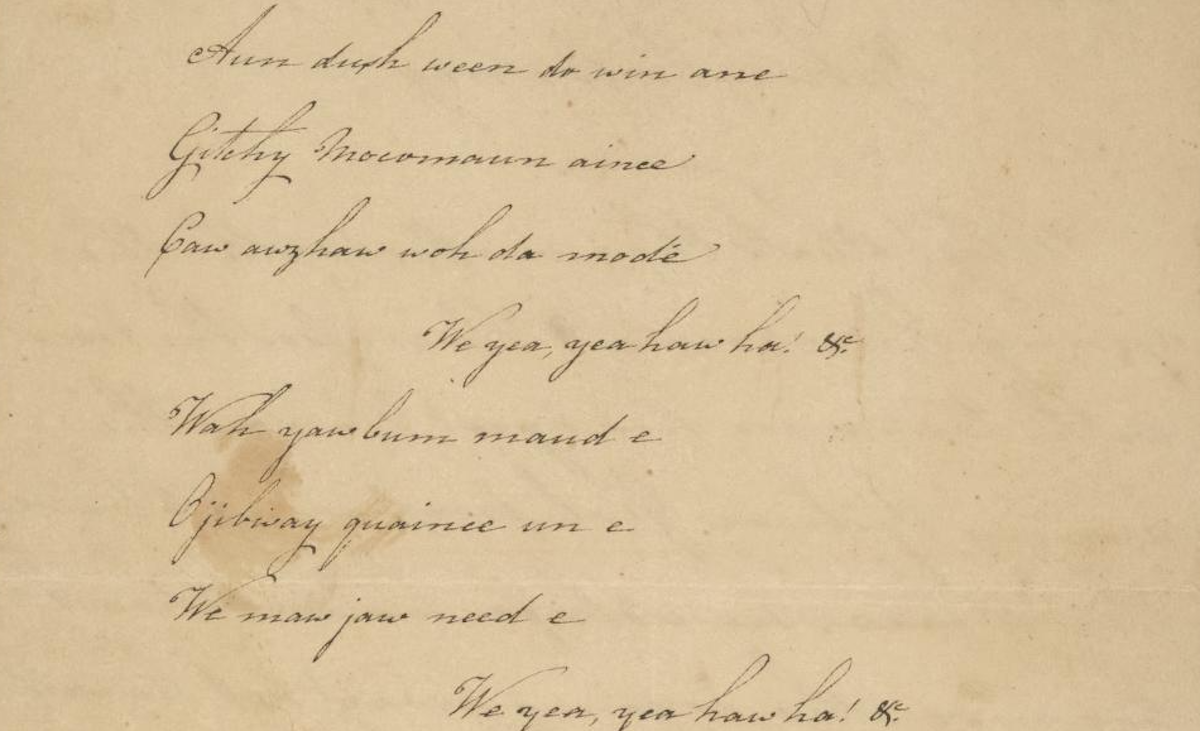 Aun dush ween do win ane
Gitchy Mocomaun aince
Caw awzhaw woh da modé
We yea, yea haw ha! &c.
Wah yaw bum maud e
Ojibway quaince un e
We maw jaw need e
We yea, yea haw ha! &c.